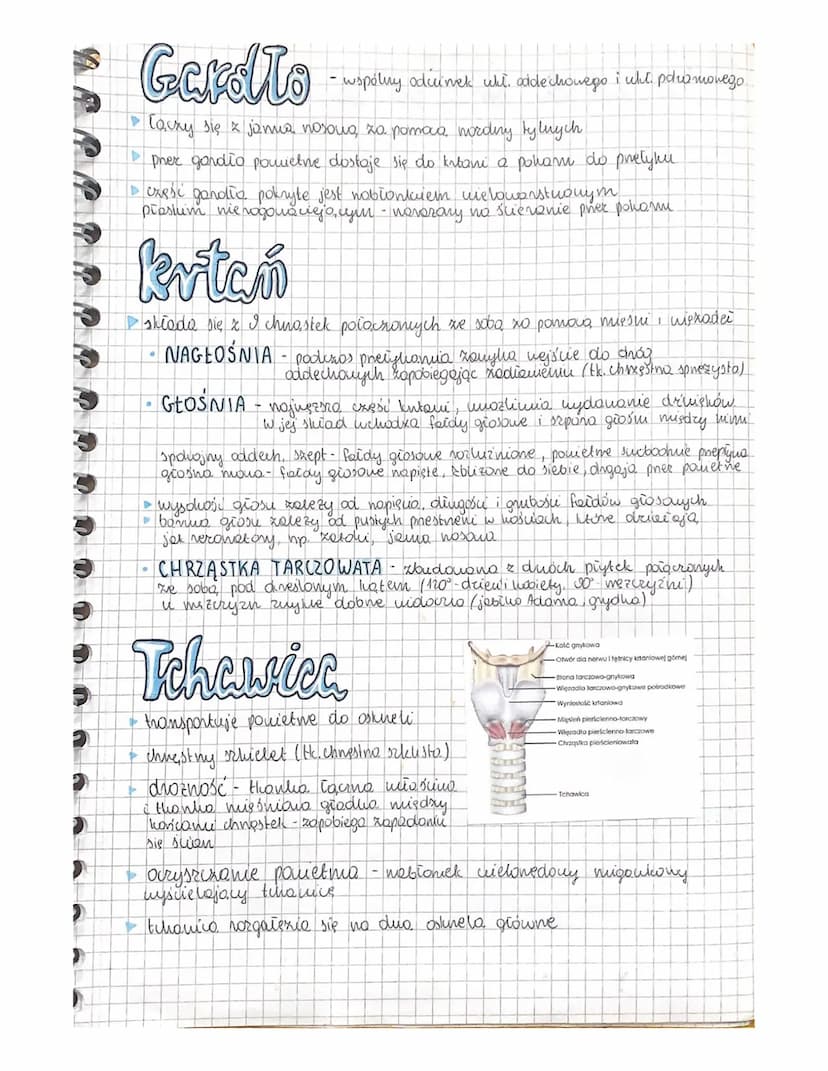 Gardło - wspólny odcinek ukł. oddechowego i ukł. pokarmowego
łączy się z jamą nosową za pomocą nozdrzy tylnych
przez gardło powietrze dostaje się do krtani a pokarm do przełyku
część gardła pokryte jest nabłonkiem wielowarstwowym
płaskim nierogowaciejącym - narażony na ścieranie przez pokarm
krtań
składa się z 9 chrząstek połączonych ze sobą za pomocą mięśni i więzadeł
NAGŁOŚNIA - podczas przełykania zamyka wejście do dróg
oddechowych zapobiegając zadławieniu (tk. chrzęstna sprężysta)
GŁOŚNIA - najwęższa część krtani, umożliwia wydawanie dźwięków
W jej skład wchodzą fałdy głosowe i szpara głośni między nimi
spokojny oddech, szept - fałdy głosowe rozluźnione, powietrze swobodnie przepływa
głośna mowa - fałdy głosowe napięte, zbliżone do siebie, drgają przez powietrze
wysokość głosu zależy od napięcia, długości i grubości fałdów głosowych
barwa głosu zależy od pustych przestrzeni w kościach, które działają
jak rezonatory, np. zatoki, jama nosowa
CHRZĄSTKA TARCZOWATA - zbudowana z dwóch płytek połączonych
ze sobą pod określonym kątem (120°- dzieci i kobiety, 90°- mężczyźni)
u mężczyzn zwykle dobrze widoczna (jabłko Adama, grdyka)
Tchawica
transportuje powietrze do oskrzeli
chrzęstny szkielet (tk. chrzęstna szklista)
drożność - tkanka łączna właściwa
i tkanka mięśniowa gładka między
końcami chrząstek - zapobiega zapadaniu
się ścian
oczyszczanie powietrza - nabłonek wielorzędowy migawkowy
wyścielający tchawicę
tchawica rozgałęzia się na dwa oskrzela główne
Kość gnykowa
Otwór dla nerwu i tętnicy krtaniowej górnej
Błona tarczowo-gnykowa
Więzadło tarczowo-gnykowe pośrodkowe
Wyniosłość krtaniowa
Mięsień pierścienno-tarczowy
Więzadło pierścienno-tarczowe
Chrząstka pierścieniowata
Tchawica